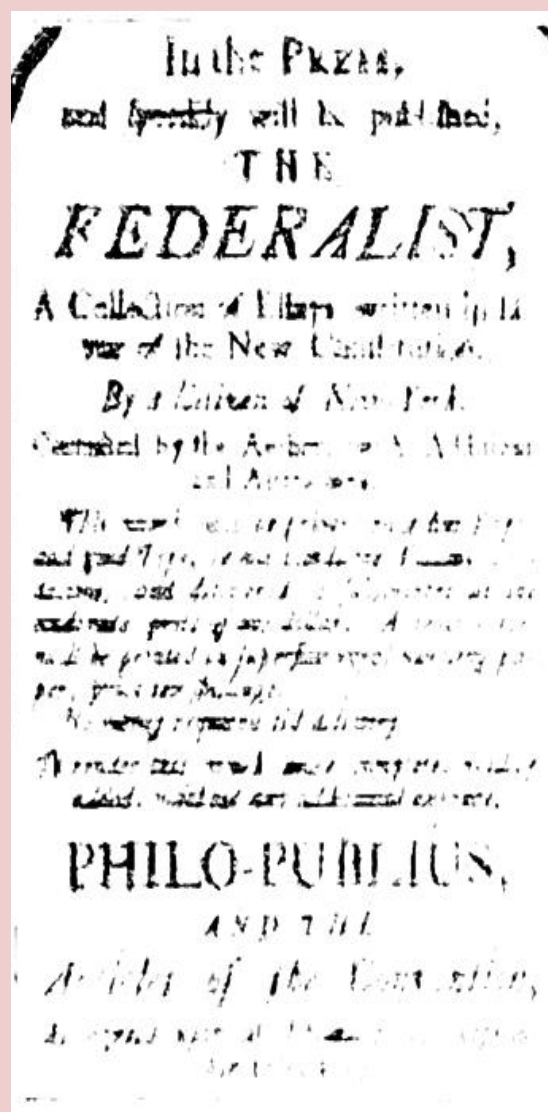 In the PRESS,
and speedily will be published,
THE
FEDERALIST,
A Collection of Essays written in fa-
vor of the New Constitution.
By a Citizen of New-York.
Corrected by the Author, with Additions
and Alterations.
This work will be printed on a fine Paper
and good Type, in one handsome Volume
and delivered to subscribers at the
moderate price of one dollar. A few
will be printed on superfine royal writing pa-
per, price ten shillings.
No money required till delivery.
To render this work more complete, will be
added, without any additional expence,
PHILO-PUBLIUS,
AND THE
Articles of the Convention,
As agreed upon at